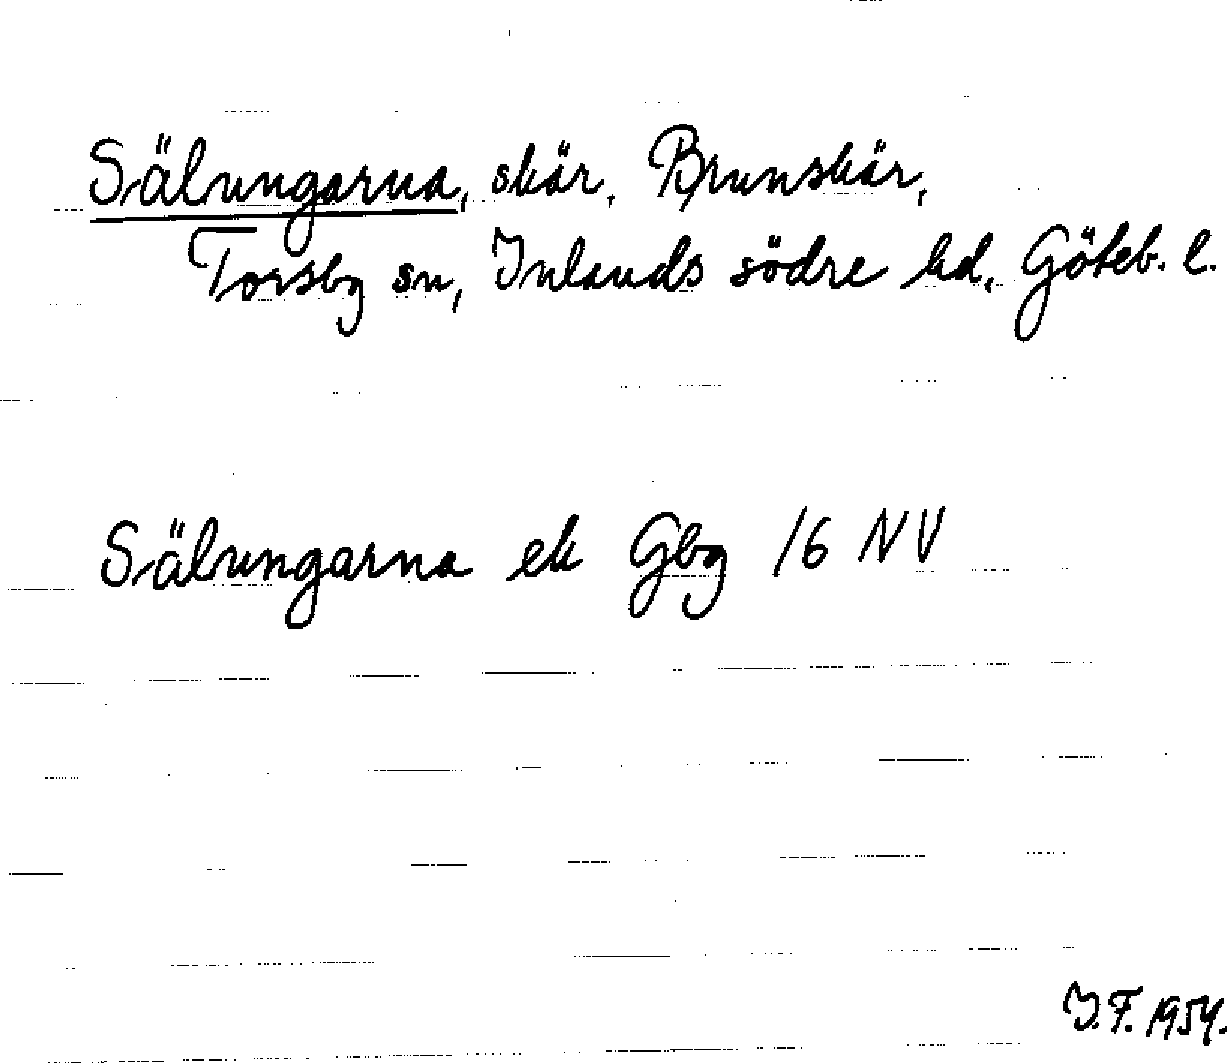 Sälungarna, skär, Brunskär,
Torsby sn, Inlands södre hd, Göteb. l.
Sälungarna ek Gbg 16 NV
I.F. 1954.